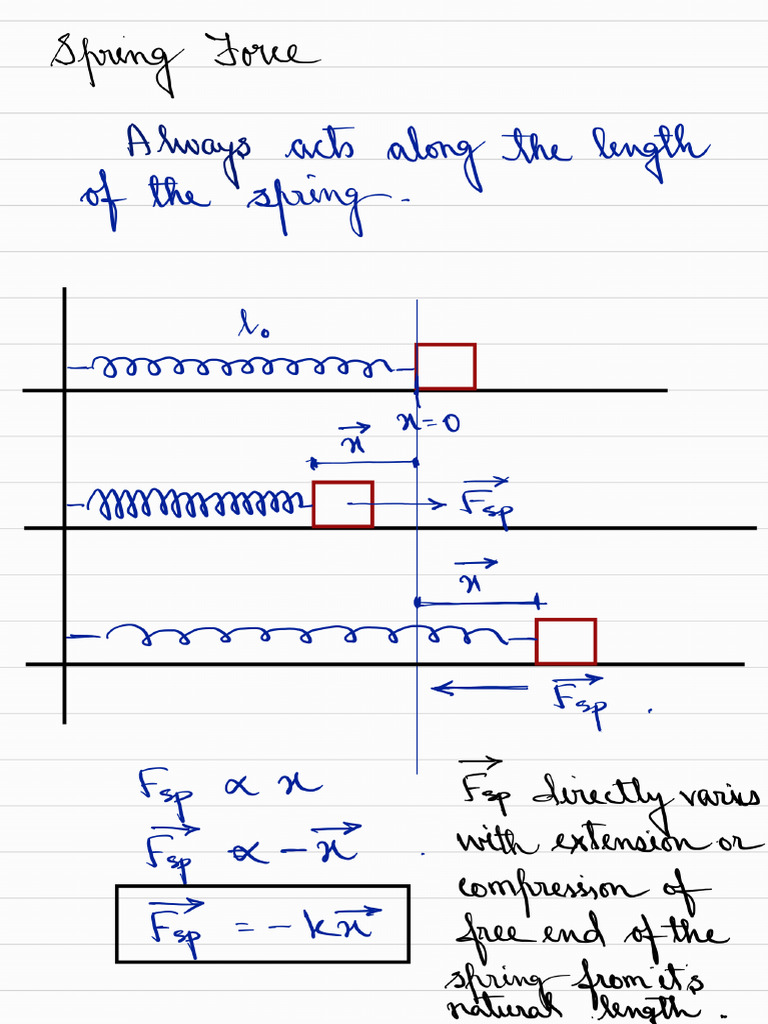 Spring Force
Always acts along the length
of the spring.
l₀
x = 0
x⃗
F⃗sp
x⃗
F⃗sp .
Fsp ∝ x
F⃗sp ∝ - x⃗ .
F⃗sp = - kx⃗
F⃗sp directly varies
with extension or
compression of
free end of the
spring from it's
natural length.